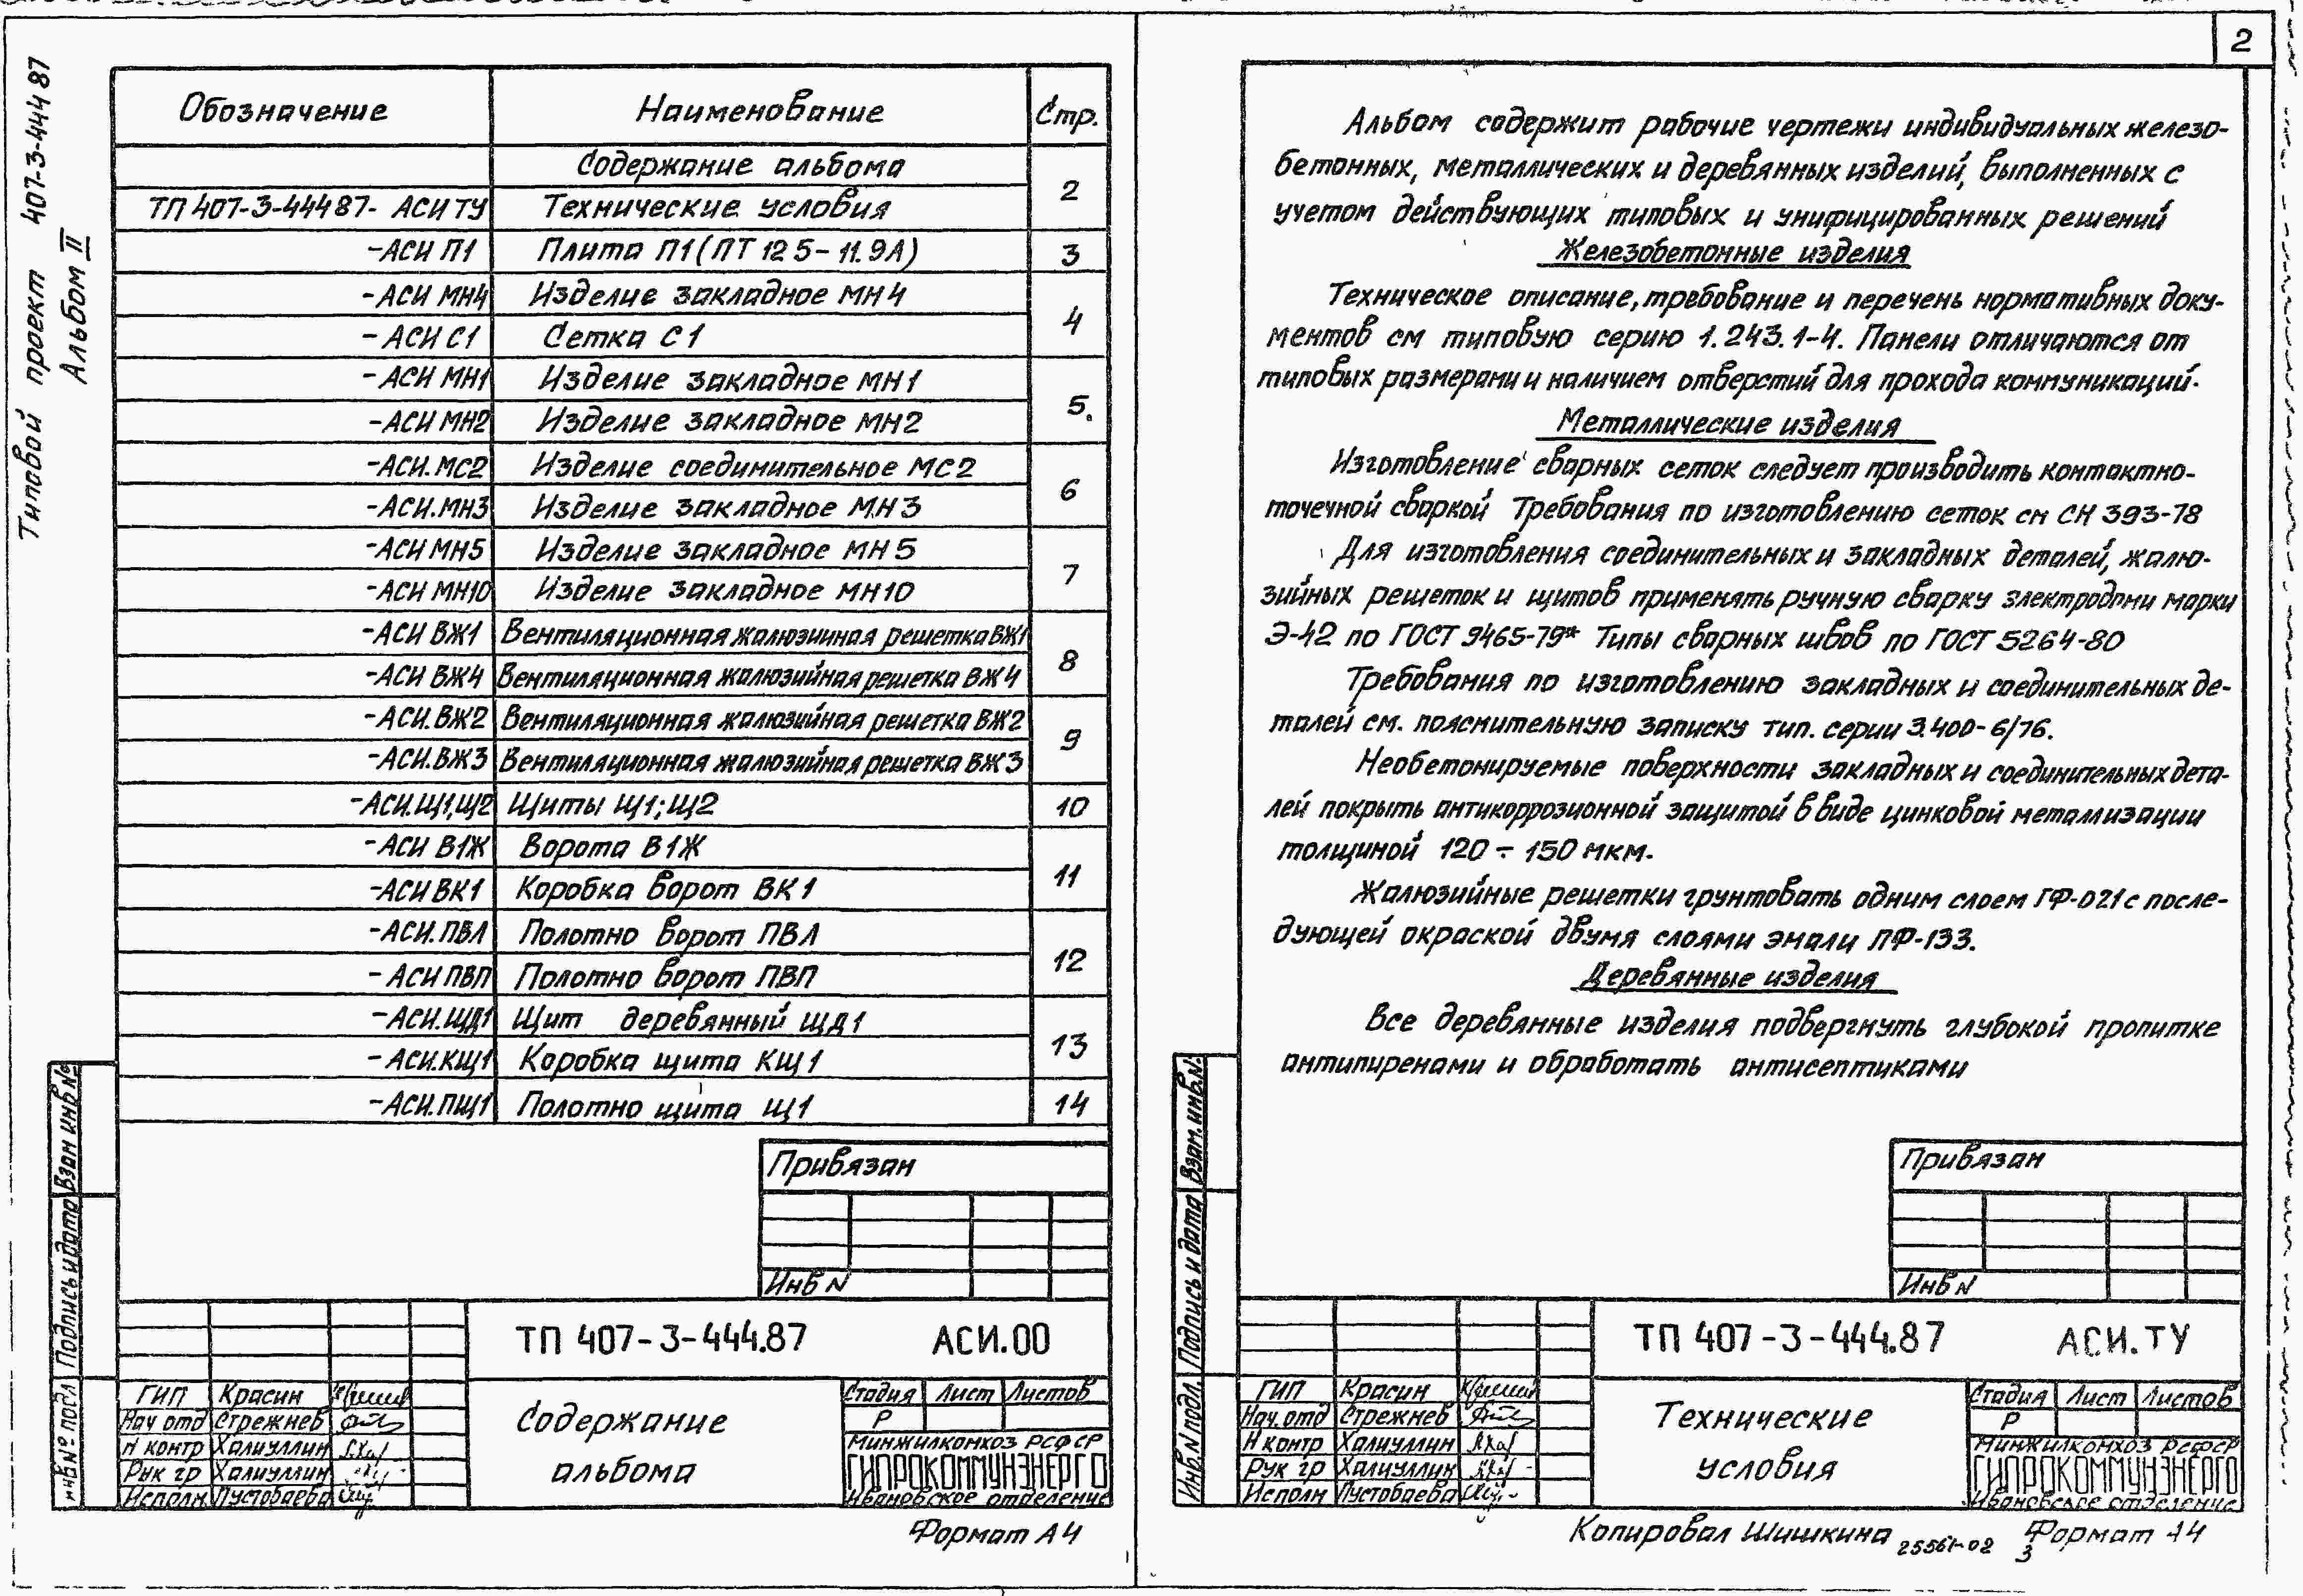 2
Типовой проект 407-3-444 87
Альбом II
Обозначение Наименование Стр.
Содержание альбома
2
ТП 407-3-444 87- АСИ ТУ Технические условия
-АСИ П1 Плита П1 (ПТ 12 5-11.9А) 3
-АСИ МН4 Изделие закладное МН4
4
- АСИ С1 Сетка С1
- АСИ МН1 Изделие закладное МН1
5.
-АСИ МН2 Изделие закладное МН2
-АСИ.МС2 Изделие соединительное МС2
6
-АСИ.МН3 Изделие закладное МН3
-АСИ МН5 Изделие закладное МН5
7
-АСИ МН10 Изделие закладное МН10
-АСИ ВЖ1 Вентиляционная жалюзийная решетка ВЖ1
8
-АСИ ВЖ4 Вентиляционная жалюзийная решетка ВЖ4
-АСИ.ВЖ2 Вентиляционная жалюзийная решетка ВЖ2
9
-АСИ.ВЖ3 Вентиляционная жалюзийная решетка ВЖ3
-АСИ.Щ1,Щ2 Щиты Щ1; Щ2 10
-АСИ В1Ж Ворота В1Ж
11
-АСИ ВК1 Коробка ворот ВК1
-АСИ.ПВЛ Полотно ворот ПВЛ
12
- АСИ ПВП Полотно ворот ПВП
-АСИ.ЩД1 Щит деревянный ЩД1
13
-АСИ.КЩ1 Коробка щита КЩ1
-АСИ.ПЩ1 Полотно щита Щ1 14
Привязан
Инв N
Взам инв №
Подпись и дата
инв № посл
ТП 407-3-444.87 АСИ.00
ГИП Красин
Нач отд Стрежнев
Н контр Халиуллин
Рук гр Халиуллин
Исполн Пустобаева
Содержание
альбома
Стадия Лист Листов
Р
Минжилкомхоз РСФСР
ГИПРОКОММУНЭНЕРГО
Ивановское отделение
Формат А4
Альбом содержит рабочие чертежи индивидуальных железо-
бетонных, металлических и деревянных изделий, выполненных с
учетом действующих типовых и унифицированных решений
Железобетонные изделия
Техническое описание, требование и перечень нормативных доку-
ментов см типовую серию 1.243.1-4. Панели отличаются от
типовых размерами и наличием отверстий для прохода коммуникаций.
Металлические изделия
Изготовление сварных сеток следует производить контактно-
точечной сваркой Требования по изготовлению сеток см СН 393-78
Для изготовления соединительных и закладных деталей, жалю-
зийных решеток и щитов применять ручную сварку электродами марки
Э-42 по ГОСТ 9465-79* Типы сварных швов по ГОСТ 5264-80
Требования по изготовлению закладных и соединительных де-
талей см. пояснительную записку тип. серии 3.400-6/76.
Необетонируемые поверхности закладных и соединительных дета-
лей покрыть антикоррозионной защитой в виде цинковой металлизации
толщиной 120 ÷ 150 мкм.
Жалюзийные решетки грунтовать одним слоем ГФ-021 с после-
дующей окраской двумя слоями эмали ПФ-133.
Деревянные изделия
Все деревянные изделия подвергнуть глубокой пропитке
антипиренами и обработать антисептиками
Привязан
Инв N
Взам. инв.N.
Подпись и дата
Инв. N подл.
ТП 407-3-444.87 АСИ.ТУ
ГИП Красин
Нач. отд Стрежнев
Н контр Халиуллин
Рук гр Халиуллин
Исполн Пустобаева
Технические
условия
Стадия Лист Листов
Р
Минжилкомхоз РСФСР
ГИПРОКОММУНЭНЕРГО
Ивановское отделение
Копировал Шишкина 25561-02 Формат А4
3